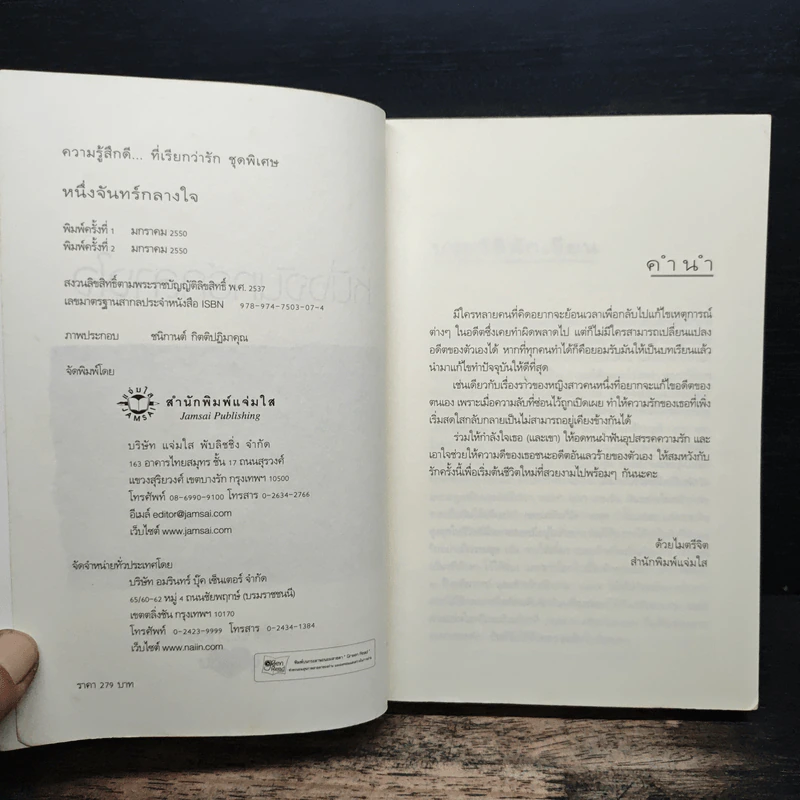 ความรู้สึกดี... ที่เรียกว่ารัก ชุดพิเศษ
หนึ่งจันทร์กลางใจ
พิมพ์ครั้งที่ 1 มกราคม 2550
พิมพ์ครั้งที่ 2 มกราคม 2550
สงวนลิขสิทธิ์ตามพระราชบัญญัติลิขสิทธิ์ พ.ศ. 2537
เลขมาตรฐานสากลประจำหนังสือ ISBN 978-974-7503-07-4
ภาพประกอบ ชนิกานต์ กิตติปฏิมาคุณ
จัดพิมพ์โดย
แจ่มใส
JAMSAI
สำนักพิมพ์แจ่มใส
Jamsai Publishing
บริษัท แจ่มใส พับลิชชิ่ง จำกัด
163 อาคารไทยสมุทร ชั้น 17 ถนนสุรวงศ์
แขวงสุริยวงศ์ เขตบางรัก กรุงเทพฯ 10500
โทรศัพท์ 08-6990-9100 โทรสาร 0-2634-2766
อีเมล์ editor@jamsai.com
เว็บไซต์ www.jamsai.com
จัดจำหน่ายทั่วประเทศโดย
บริษัท อมรินทร์ บุ๊ค เซ็นเตอร์ จำกัด
65/60-62 หมู่ 4 ถนนชัยพฤกษ์ (บรมราชชนนี)
เขตตลิ่งชัน กรุงเทพฯ 10170
โทรศัพท์ 0-2423-9999 โทรสาร 0-2434-1384
เว็บไซต์ www.naiin.com
Green Read
ราคา 279 บาท
คำนำ
มีใครหลายคนที่คิดอยากจะย้อนเวลาเพื่อกลับไปแก้ไขเหตุการณ์
ต่างๆ ในอดีตซึ่งเคยทำผิดพลาดไป แต่ก็ไม่มีใครสามารถเปลี่ยนแปลง
อดีตของตัวเองได้ หากที่ทุกคนทำได้ก็คือยอมรับมันให้เป็นบทเรียนแล้ว
นำมาแก้ไขทำปัจจุบันให้ดีที่สุด
เช่นเดียวกับเรื่องราวของหญิงสาวคนหนึ่งที่อยากจะแก้ไขอดีตของ
ตนเอง เพราะเมื่อความลับที่ซ่อนไว้ถูกเปิดเผย ทำให้ความรักของเธอที่เพิ่ง
เริ่มสดใสกลับกลายเป็นไม่สามารถอยู่เคียงข้างกันได้
ร่วมให้กำลังใจเธอ (และเขา) ให้อดทนฝ่าฟันอุปสรรคความรัก และ
เอาใจช่วยให้ความดีของเธอชนะอดีตอันเลวร้ายของตัวเอง ให้สมหวังกับ
รักครั้งนี้เพื่อเริ่มต้นชีวิตใหม่ที่สวยงามไปพร้อมๆ กันนะคะ
ด้วยไมตรีจิต
สำนักพิมพ์แจ่มใส